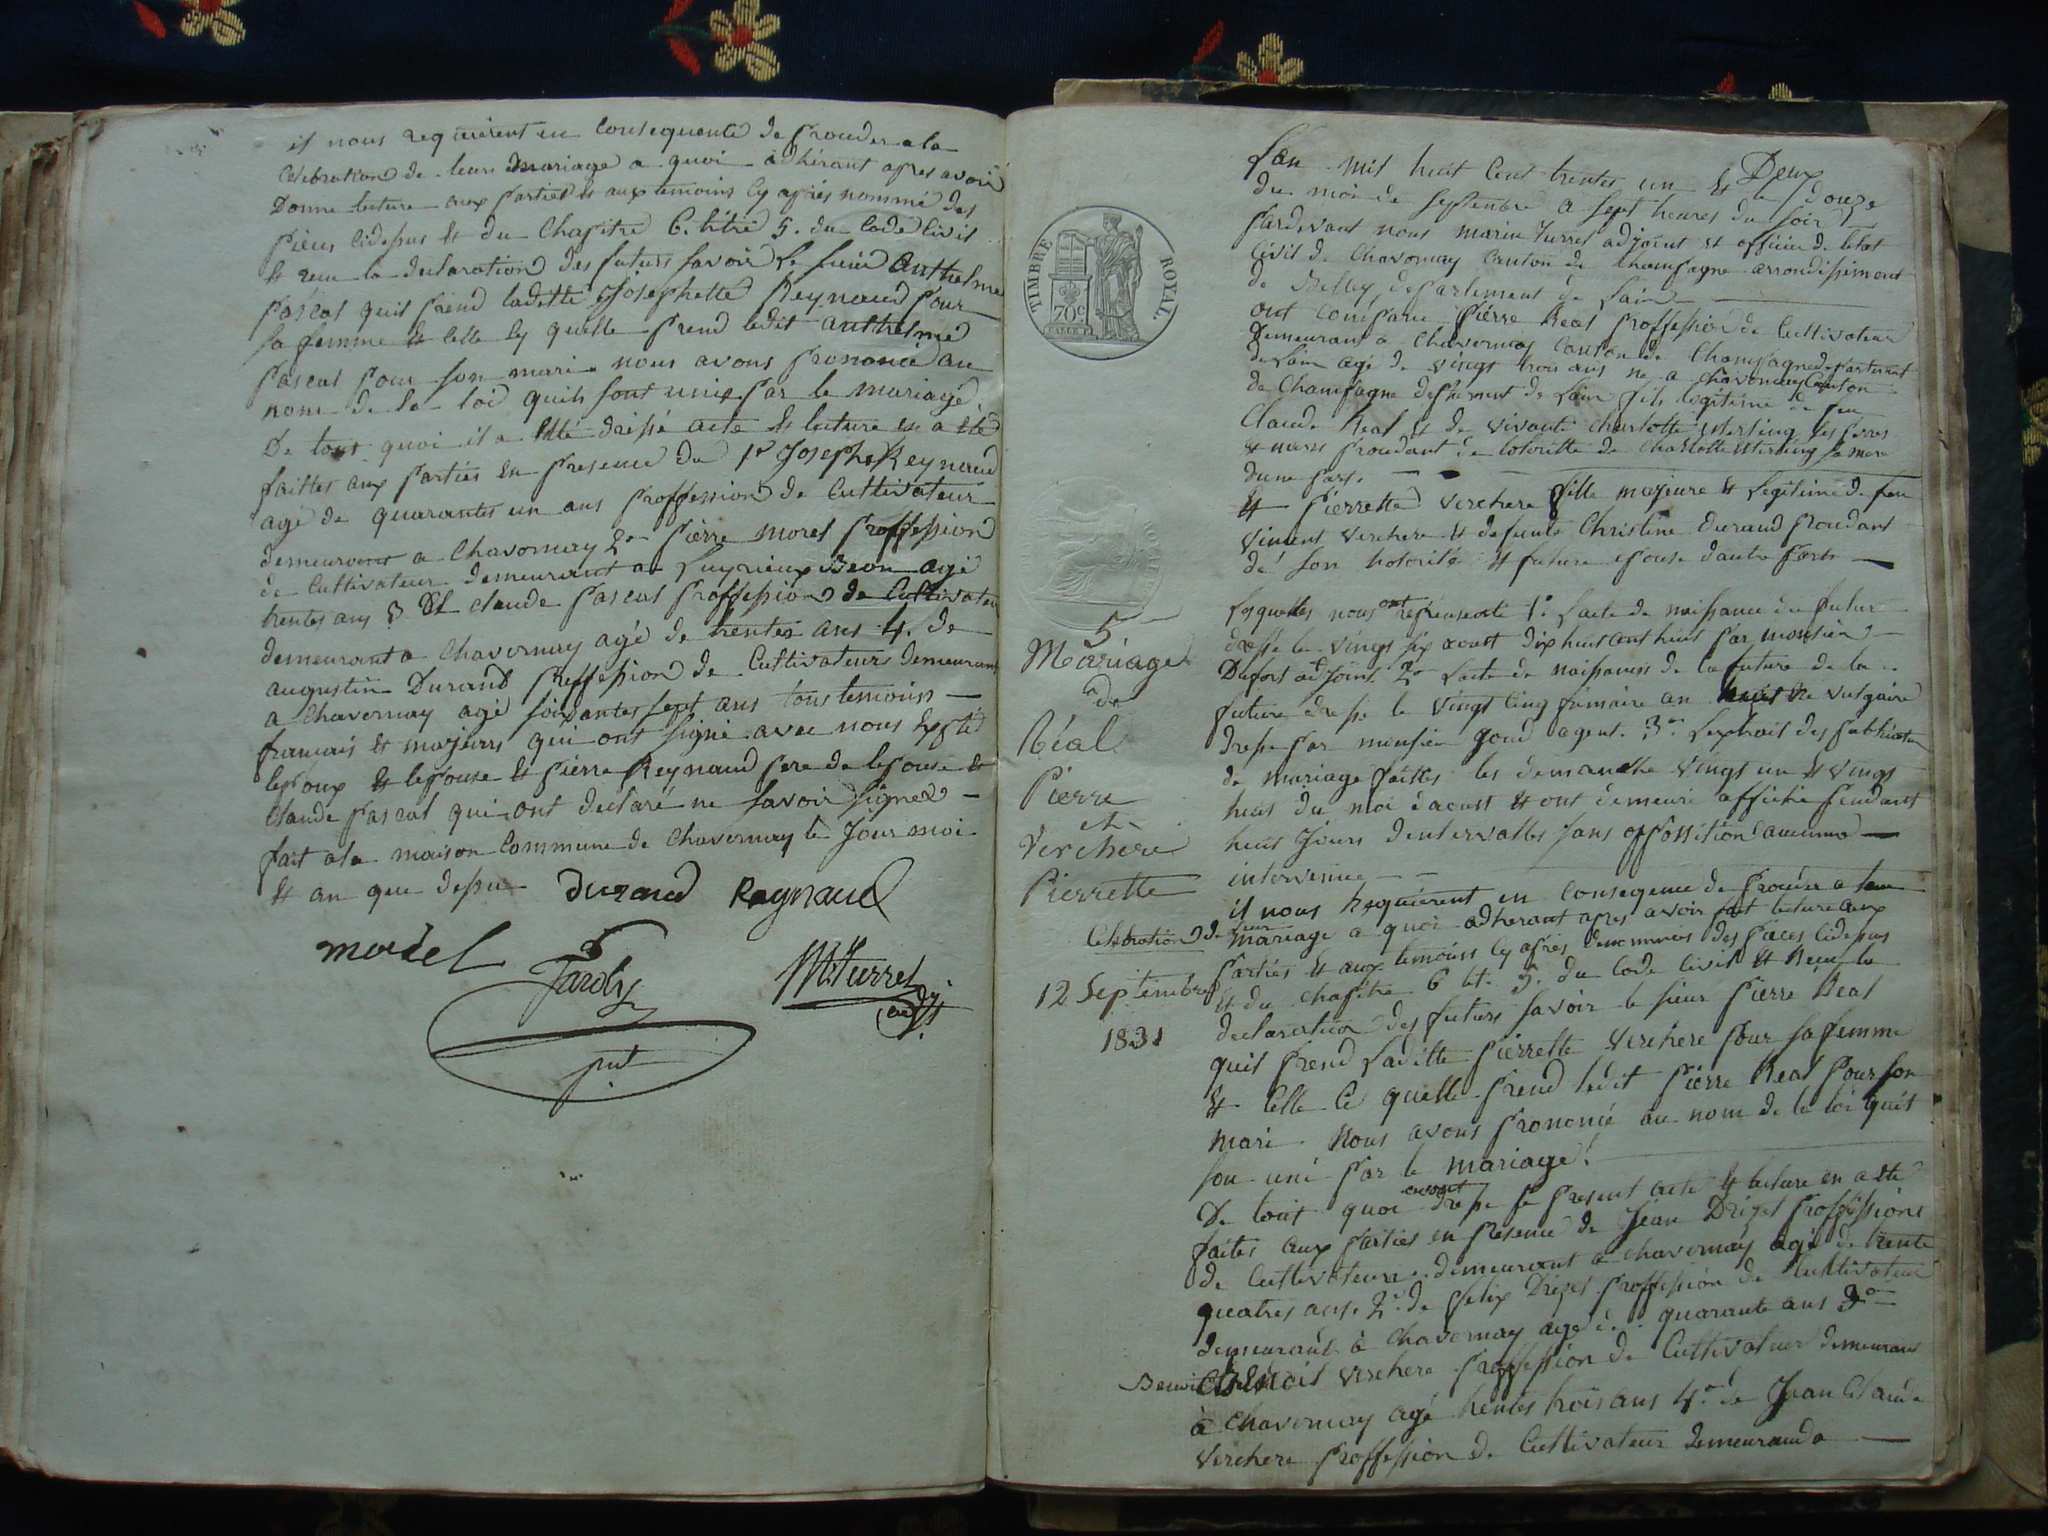 il nous requierent en consequence de proceder a la
celebration de leur mariage a quoi adhérant apres avoir
donne lecture aux parties et aux temoins cy aprés nommé des
pieces cidessus et du chapitre 6. titre 5. du code civil
et recu la declaration des futurs savoir le sieur anthelme
pascal quil prend ladette Josephette Reynaud pour
sa femme et celle cy quelle prend ledit anthelme
pascal pour son mari nous avons prononcé au
nom de la loi quils sont unis par le mariage.
De tout quoi il a été dressé acte et lecture en a été
faittes aux parties en presence du 1er Joseph Reynaud
agé de quarantes un ans proffession de cultivateur
demeurant a Chavornay 2e pierre morel proffession
de cultivateur demeurant a Luyrieux Beon agé
trentes ans 3 et claude pascal proffession de cultivateur
demeurant a Chavornay agé de trentes ans 4. de
augustin Durand proffession de cultivateurs demeurant
a Chavornay agé soixantes sept ans tous temoins
francais et majeurs qui ont signé avec nous excepté
lepoux et lepouse et pierre Reynaud pere de lepouse et
claude pascal qui ont declaré ne savoir signer
fait a la maison commune de Chavornay le Jour moi
et an que dessu Durand Raynaud
morel
Mturrel
adjt
TIMBRE ROYAL
70c
Lan mil huit cent trentes un et le douze
Deux
du moi de septembre a sept heures du soir
pardevant nous marin turrel adjoint et officier de letat
civil de Chavornay canton de Champagne arrondissement
de Belley departement de Lain
ont comparu pierre Real proffession de cultivateur
demeurant a Chavornay canton de Champagne departement
de Lain agé de vingt trois ans ne a Chavornay canton
de Champagne departement de Lain fils legitime de feu
Claude Real et de vivante charlotte les peres
et meres procedant de lotoritte de charlotte sa mere
dune part.
et pierrette verchere fille majeure et legitime de feu
vincent verchere et defunte Christine durand procedant
de son hotorité et future epouse dautre part
lesquelles nous ont representé 1° lacte de naissance du futur
dressé le vingt six aoust dix huit cent huit par monsieur
Dufort adjoint. 2e lacte de naissances de la future de la
future dressé le vingt cinq frimaire an vulgaire
dressé par monsieur goud agent. 3e lextrait des publication
de mariage faittes les demanche vingt un et vingt
huit du moi daoust et ont demeuré affiché pendant
huit Jours dintervalles sans opposition aucunne
intervenue
5
Mariage
de
Réal
Pierre
et
Verchere
Pierrette
il nous requierent en conseqence de proceder a leur
celebration de leur mariage a quoi adherant apres avoir fait lecture aux
parties et aux temoins cy aprés denommés des pieces cidessus
12 Septembre
1831
et du chapitre 6 tit. 5. du code civil et Recu la
declaration des futurs savoir le sieur pierre Real
quil prend Laditte pierrette verchere pour sa femme
et celle ci quelle prend ledit pierre Real pour son
mari nous avons prononcé au nom de la loi quil
son uni par le mariage.
De tout quoi avont dresse le present acte et lecture en a été
faites aux parties en presence de Jean Driget proffessions
de cultivateur demeurant a chavornay agé de trente
quatres ans. 2e de felix Driget proffession de cultivateur
demeurant à Chavornay agé de quarante ans 3e
Benoit verchere proffession de cultivateur demeurant
à Chavornay agé trentes trois ans 4e de Jean Claude
verchere proffession de cultivateur demeurand a